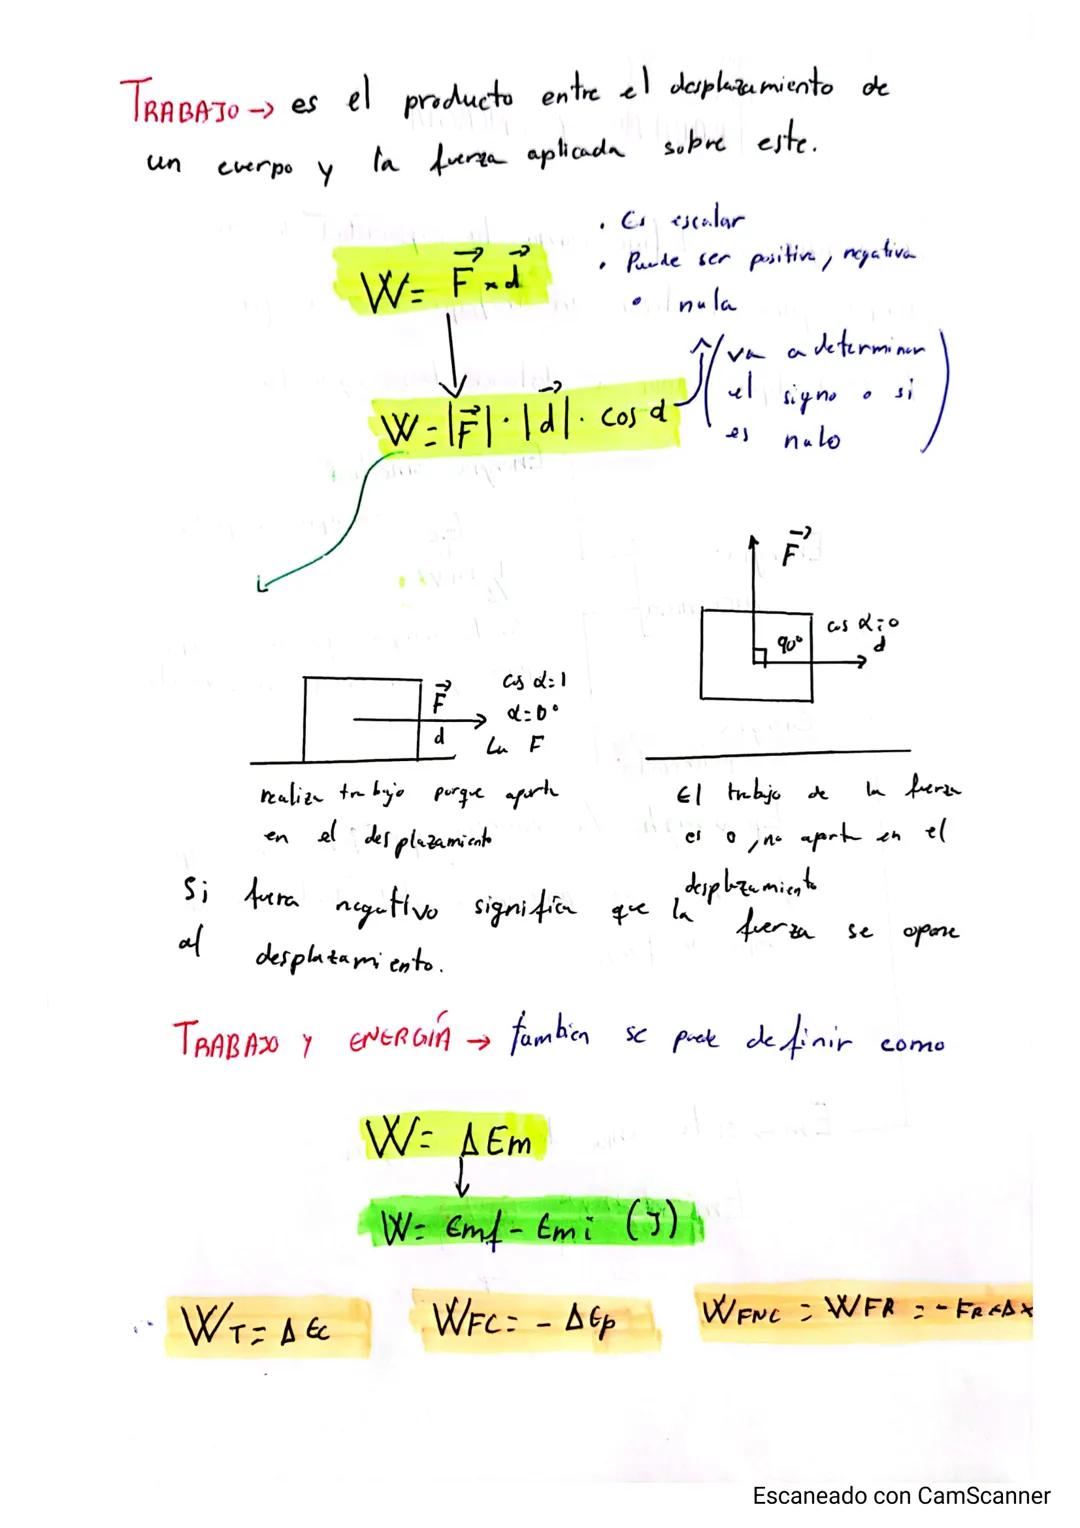 TRABAJO → es el producto entre el desplazamiento de
un cuerpo y la fuerza aplicada sobre este.
• Es escalar
• Puede ser positiva, negativa
o nula
W = F⃗ × d⃗
(va a determinar
el signo o si
es nulo)
W = |F⃗| · |d⃗| · cos α
F⃗
cos α = 0
90°
d
cos α = 1
F⃗
α = 0°
d
La F
realiza trabajo porque aporta
en el desplazamiento
El trabajo de la fuerza
es 0, no aporta en el
desplazamiento
Si fuera negativo significa que la fuerza se opone
al desplazamiento.
TRABAJO Y ENERGÍA → tambien se puede definir como
W = ΔEm
W = Emf - Emi (J)
WT = ΔEc
WFC = - ΔEp
WFNC = WFR = - FR · Δx
Escaneado con CamScanner